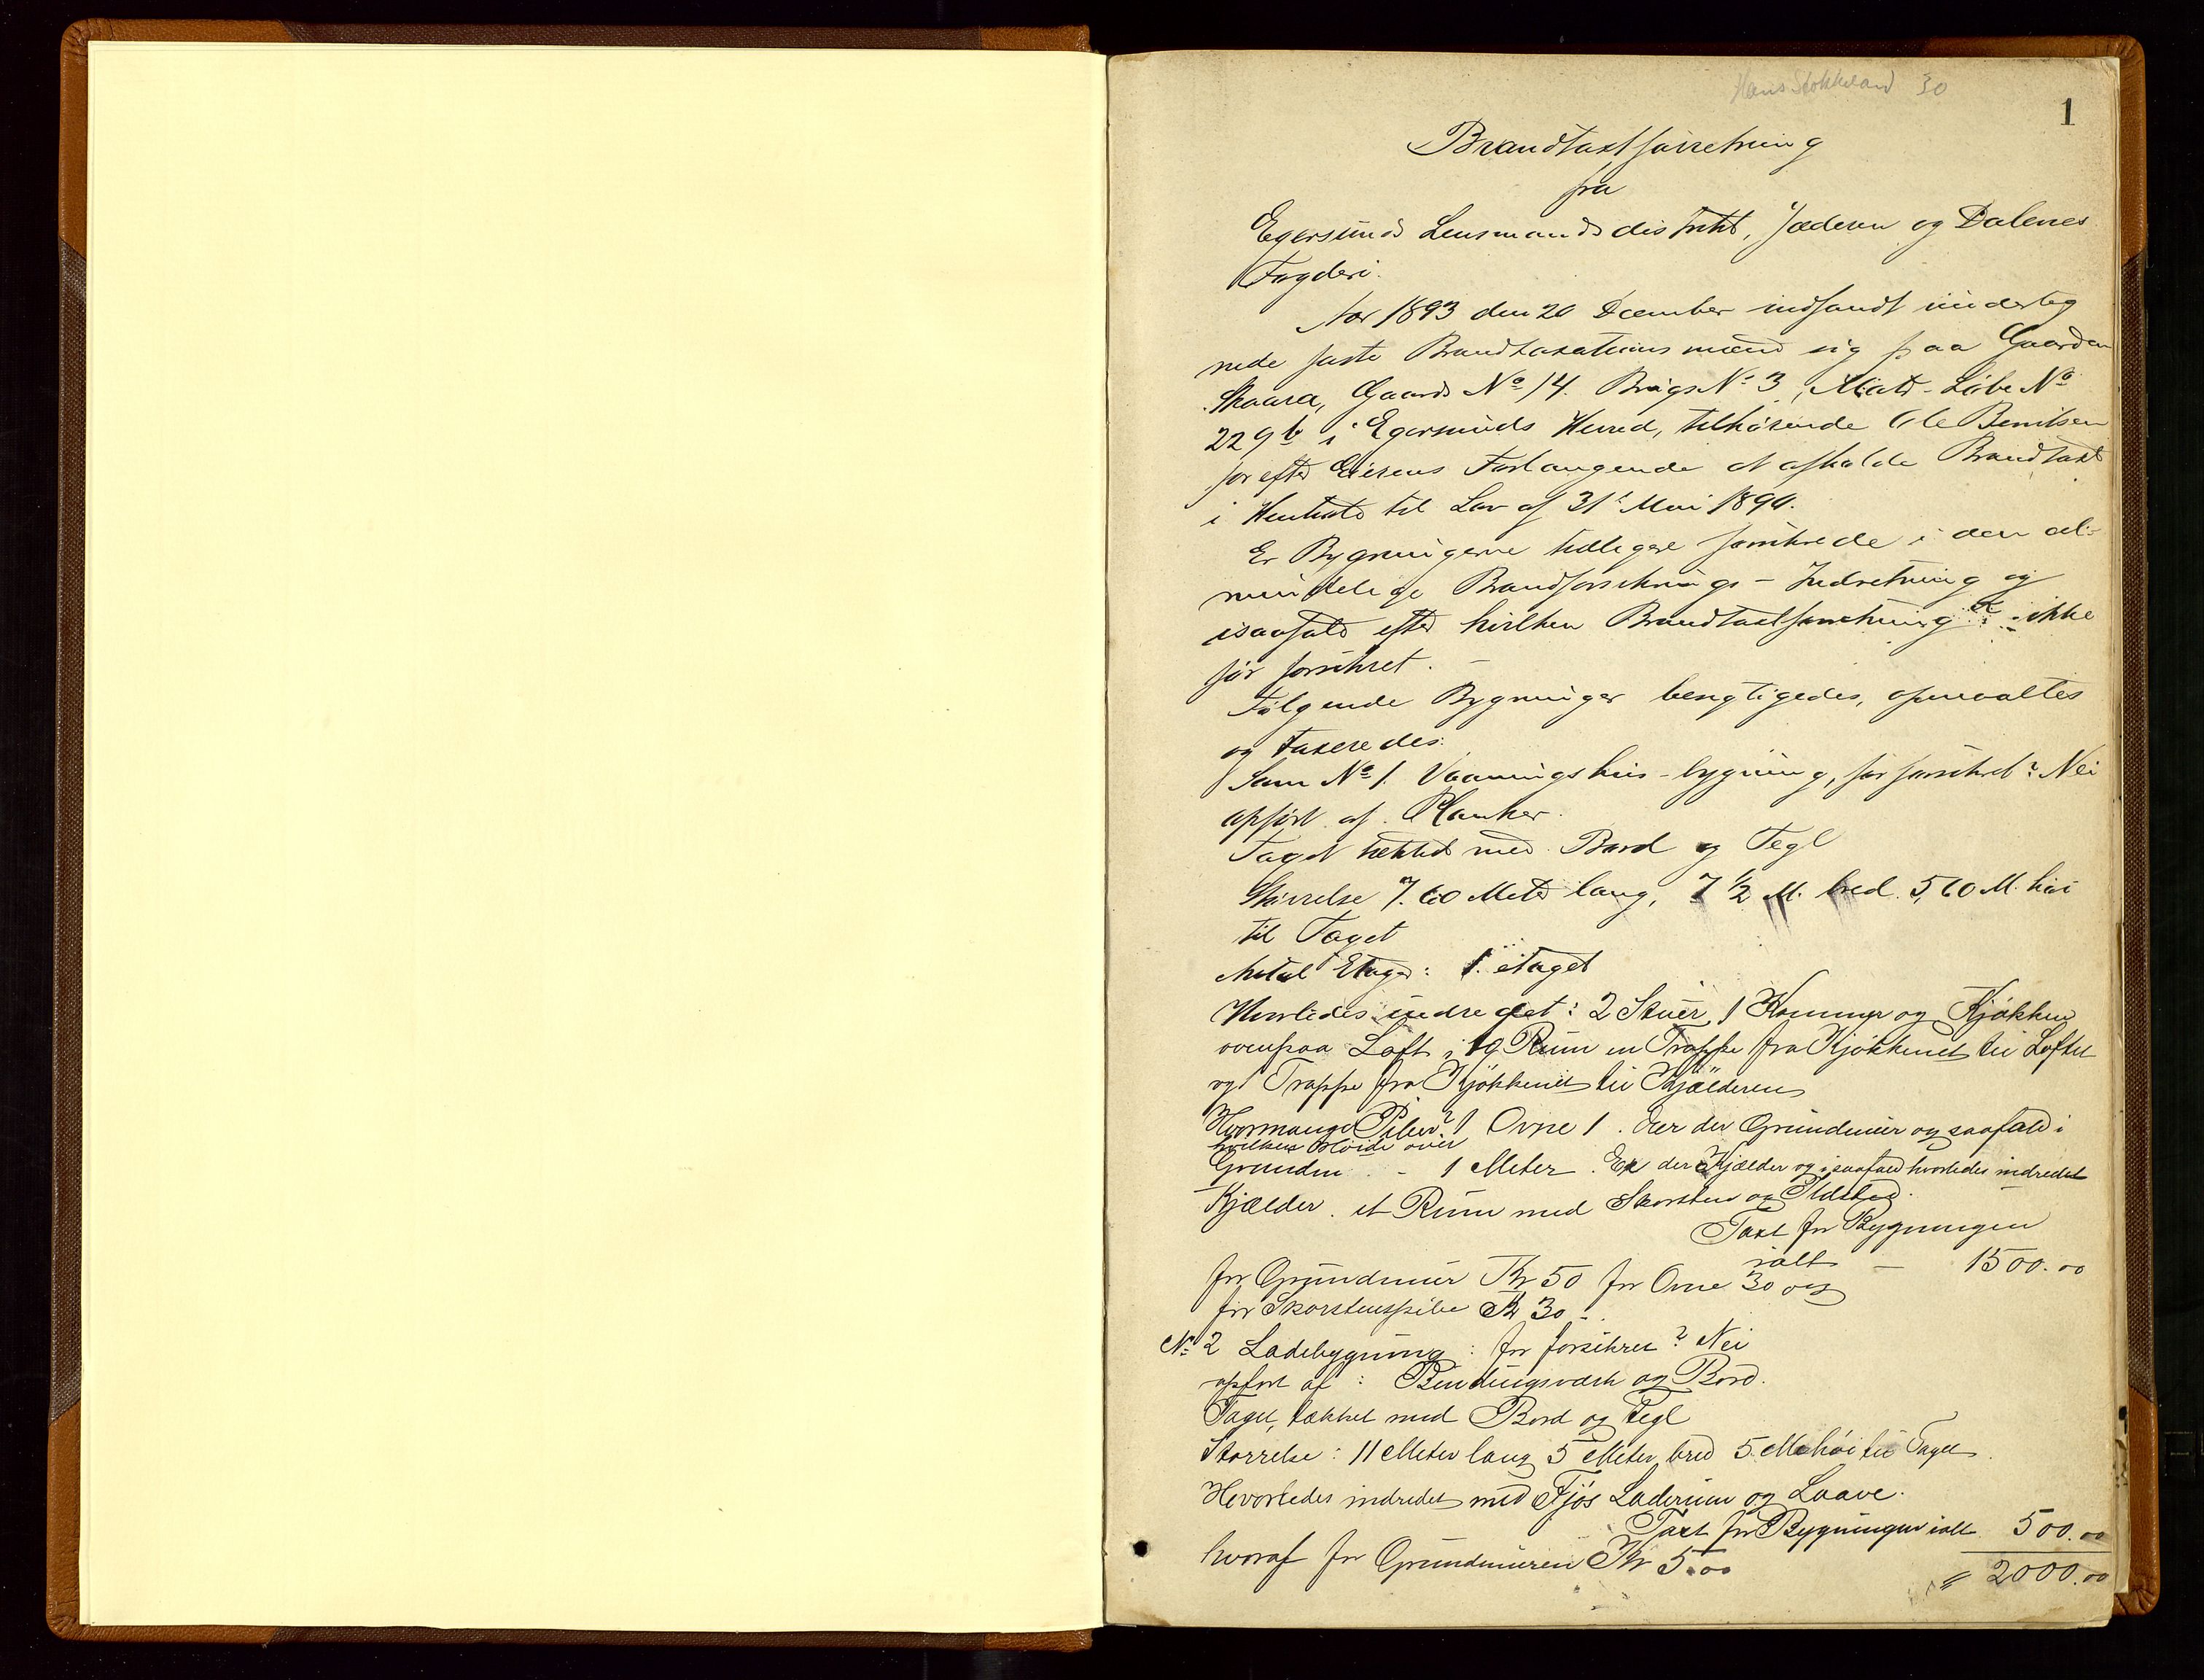 Hans Stokkeland 30
1
Brandtaxtforretning
fra
Egersunds Lensmandsdistrikt, Jæderen og Dalenes
Fogderi.
Aar 1893 den 20 December indfandt underteg
nede faste Brandtaxationsmænd sig paa Gaarden
Skaara, Gaards No 14. Brugs No 3, Matr-Løbe No
229 b i Egersunds Herred, tilhørende Ole Berntsen
for efter Eierens Forlangende at afholde Brandtaxt
i Henhold til Lov af 31t Mai 1890.
Er Bygningerne tidligere forsikrede i den al-
mindelige Brandforsikrings-Indretning og
isaafald efter hvilken Brandtaxtforretning? ikke
før forsikret. -
Følgende Bygninger besigtigedes, opmaaltes
og taxeredes:
Som No 1. Vaaningshus-bygning, før forsikret? Nei
opført af Planker.
Taget tækket med Bord og Tegl
Størrelse 7.60 Meter lang, 7 1/2 M. bred. 5,60 M. høi
til Taget
Antal Etager: 1. etaget
Hvorledes indredet: 2 Stuer, 1 Kammer og Kjøkken
ovenpaa Loft, 1 Rum en Trappe fra Kjøkkenet til Loftet
og Trappe fra Kjøkkenet til Kjælderen
Hvormange Piber? 1 Ovne 1. Er der Grundmur og saafald i
hvilken Høide over
Grunden - 1 Meter. Er der Kjælder og isaafald hvorledes indredet
Kjælder. et Rum med Skorsten og Ildsted.
Taxt for Bygningen
ialt - 1500.00
for Grundmur Kr 50 for Ovne 30 og
for Skorstenspibe Kr 30 -.
No 2 Ladebygning: før forsikret? Nei
opført af: Bindingsværk og Bord.
Taget, tækket med Bord og Tegl
Størrelse: 11 Meter lang 5 Meter bred 5 M høi til Taget.
Hvorledes indredet med Fjøs Laderum og Laave.
Taxt for Bygningen ialt 500.00
hvoraf for Grundmuren Kr 5.00
" 2000.00